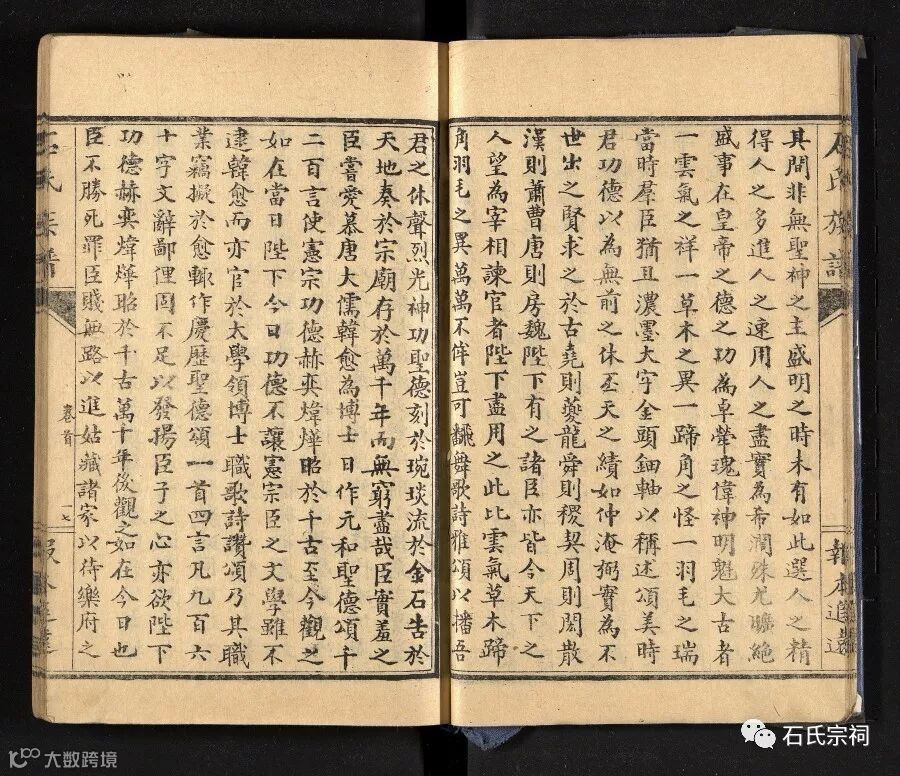 石氏族譜
報本追遠
其間非無聖神之主盛明之時未有如此選人之精
得人之多進人之速用人之盡實為希濶殊尤曠絶
盛事在皇帝之德之功為卓犖瑰偉神明魁大古者
一雲氣之祥一草木之異一蹄角之怪一羽毛之瑞
當時羣臣猶且濃墨大字金頭鈿軸以稱述頌美時
君功德以為無前之休丕天之績如仲淹弼實為不
世出之賢求之於古堯則夔龍舜則稷契周則閎散
漢則蕭曹唐則房魏陛下有之諸臣亦皆今天下之
人望為宰相諫官者陛下盡用之此比雲氣草木蹄
角羽毛之異萬萬不侔豈可飜舞歌詩雅頌以播吾
君之休聲烈光神功聖德刻於琬琰流於金石告於
天地奏於宗廟存於萬千年而無窮盡哉臣實羞之
臣嘗愛慕唐大儒韓愈為博士日作元和聖德頌千
二百言使憲宗功德赫奕煒燁昭於千古至今觀之
如在當日陛下今日功德不讓憲宗臣之文學雖不
逮韓愈而亦官於太學領博士職歌詩讚頌乃其職
業竊擬於愈輒作慶歷聖德頌一首四言凡九百六
十字文辭鄙俚固不足以發揚臣子之心亦欲下
功德赫奕煒燁昭於千古萬十年後觀之如在今日也
臣不勝死罪臣賤無路以進姑藏諸家以待樂府之
卷首
一七
石氏宗祠
大数跨境